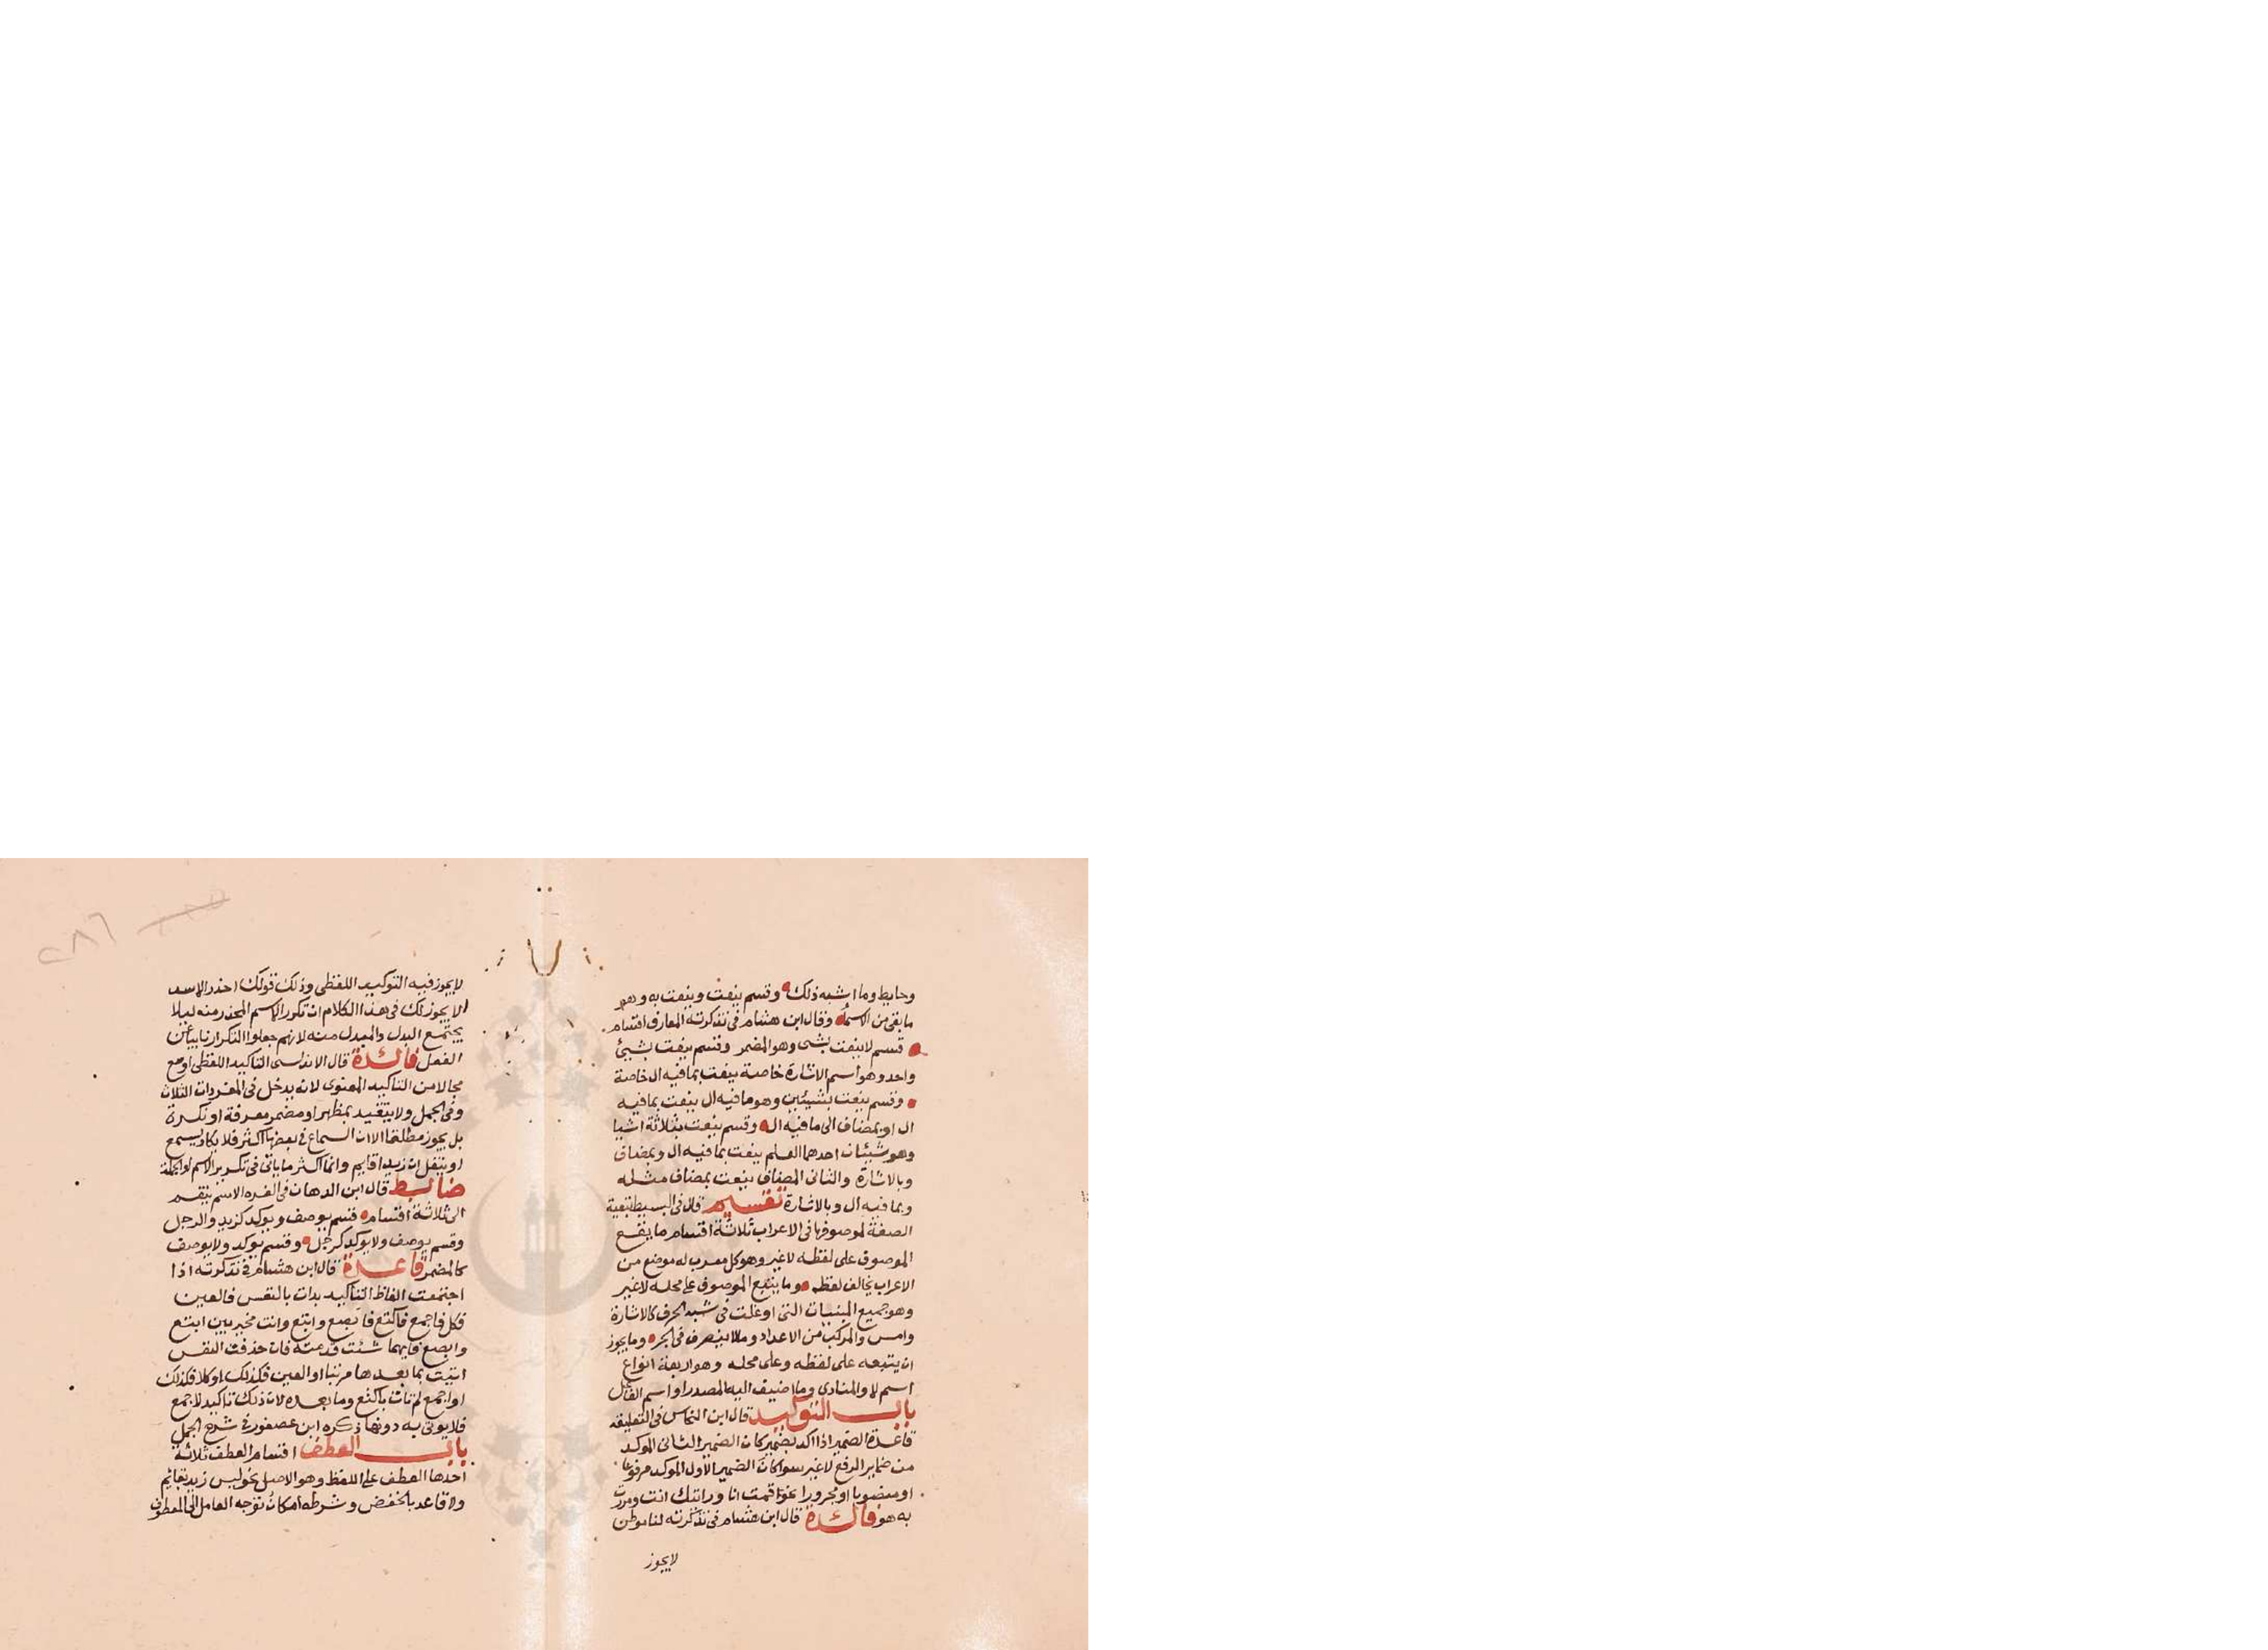 وحايط وما اشبه ذلك وقسم ينعت وينعت به وهو
ما بقى من الاسماء وقال ابن هشام فى تذكرته المعارف اقسام
قسم لا ينعت بشى وهو المضمر وقسم ينعت بشيئ
واحد وهو اسم الاشارة خاصة ينعت بما فيه ال خاصة
وقسم ينعت بشيئين وهو ما فيه ال ينعت بما فيه
ال او بمضاف الى ما فيه ال وقسم ينعت بثلاثة اشيا
وهو شيئان احدهما العلم ينعت بما فيه ال وبمضاف
وبالاشارة والثانى المضاف ينعت بمضاف مثله
وبما فيه ال وبالاشارة تقسيم قال فى البسيط تبعية
الصفة لموصوفها فى الاعراب ثلاثة اقسام ما يتبع
الموصوف على لفظه لا غير وهو كل معرب له موضع من
الاعراب يخالف لفظه وما يتبع الموصوف على محله لا غير
وهو جميع المبنيات التى اوغلت فى شبه الحرف كالاشارة
وامس والمركب من الاعداد وما لا ينصرف فى الجر وما يجوز
ان يتبعه على لفظه وعلى محله وهو اربعة انواع
اسم لا والمنادى وما اضيف اليه المصدر او اسم الفاعل
باب التوكيد قال ابن النحاس فى التعليقة
قاعدة الضمير اذا اكد بضمير كان الضمير الثانى الموكد
من ضماير الرفع لا غير سوا كان الضمير الاول الموكد مرفوعا
او منصوبا او مجرورا نحو قمت انا ورايتك انت ومررت
به هو فائدة قال ابن هشام فى تذكرته لنا موطن
لا يجوز
لا يجوز فيه التوكيد اللفظى وذلك قولك احذر الاسد
الا يجوز لك فى هذا الكلام ان تكرر الاسم المحذر منه ليلا
يجتمع البدل والمبدل منه لانهم جعلوا التكرار نايبا عن
الفعل فائدة قال الاندلسى التاكيد اللفظى اوسع
مجالا من التاكيد المعنوى لانه يدخل فى المفردات الثلاث
وفى الجمل ولا يتقيد بمظهر او مضمر معرفة او نكرة
بل يجوز مطلقا الا ان السماع فى بعضها اكثر فلا يكاد يسمع
او ينقل ان زيدا قايم وانما اكثر ما ياتى فى تكرير الاسم او الجملة
ضابط قال ابن الدهان فى الغره الاسم ينقسم
الى ثلاثة اقسام قسم يوصف ويوكد كزيد والرجل
وقسم يوصف ولا يوكد كرجل وقسم يوكد ولا يوصف
كالمضمر قاعدة قال ابن هشام فى تذكرته اذا
اجتمعت الفاظ التاكيد بدات بالنفس فالعين
فكل فاجمع فاكتع فابصع وابتع وانت مخير بين ابتع
وابصع فايهما شئت قدمته فان حذفت النفس
اتيت بما بعدها مرتبا او العين فكذلك او كلا فكذلك
او اجمع لم تات باكتع وما بعده لان ذلك تاكيد لاجمع
فلا يوتى به دونها ذكره ابن عصفور فى شرح الجمل
باب العطف اقسام العطف ثلاثة
احدها العطف على اللفظ وهو الاصل نحو ليس زيد بقايم
ولا قاعد بالخفض وشرطه امكان توجه العامل الى المعطوف